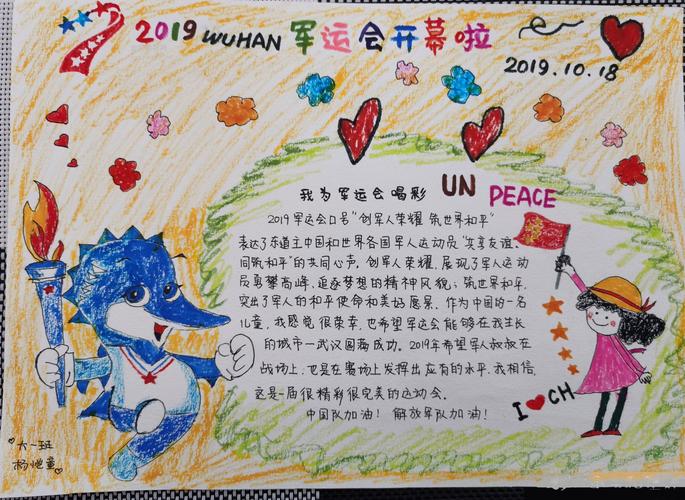 2019 WUHAN 军运会开幕啦
2019.10.18
我为军运会喝彩
UN PEACE
2019军运会口号"创军人荣耀 筑世界和平"
表达了东道主中国和世界各国军人运动员"共享友谊、
同筑和平"的共同心声。创军人荣耀,展现了军人运动
员勇攀高峰、追逐梦想的精神风貌;筑世界和平,
突出了军人的和平使命和美好愿景。作为中国的一名
儿童,我感觉很荣幸,也希望军运会能够在我生长
的城市一武汉圆满成功。2019年希望军人叔叔在
战场上,也是在赛场上发挥出应有的水平,我相信,
这是一届很精彩很完美的运动会。
中国队加油! 解放军队加油!
I CH
大一班